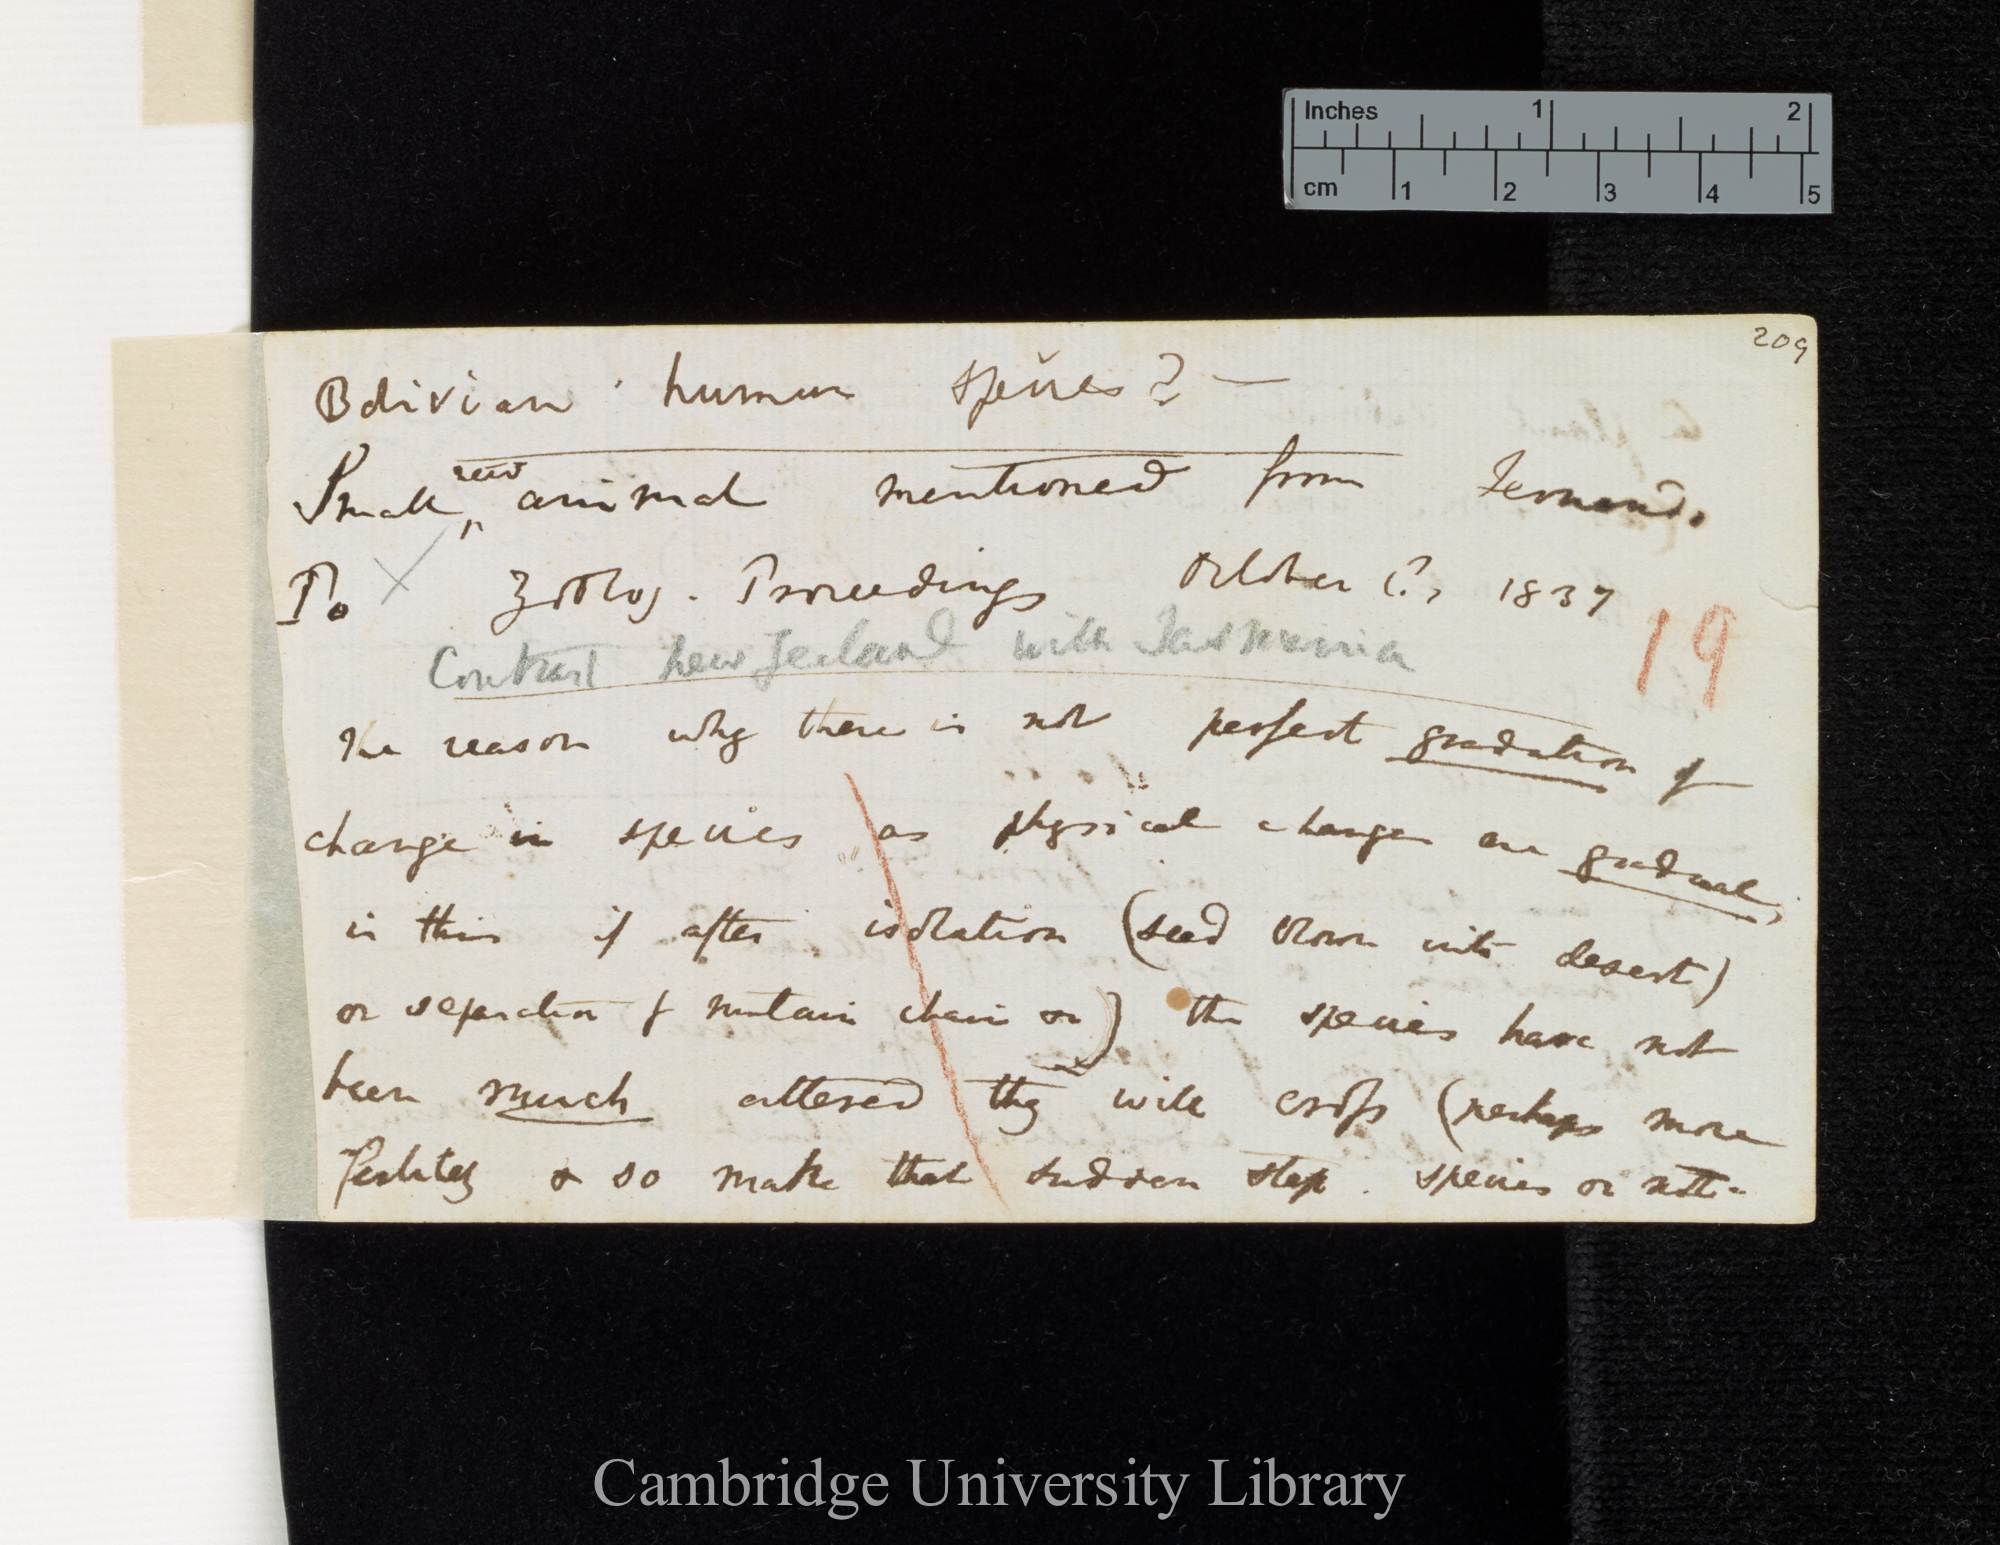 Inches 1 2
cm 1 2 3 4 5
209
Bolivian human species? —
Small new animal mentioned from Fernando
Po Zoolog. Proceedings October (?) 1837
Contrast New Zealand with Tasmania
19
The reason why there is not perfect gradation of
change in species as physical changes are gradual,
is this if after isolation (seed blown into desert)
or separation by mountain chain &c) the species have not
been much altered they will cross (perhaps more
fertility & so make that sudden step. species or not.
Cambridge University Library